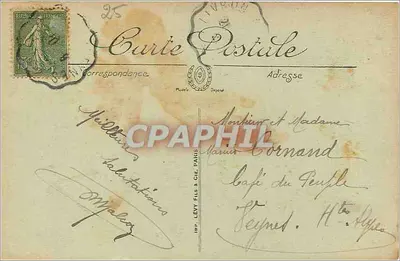 25
Carte Postale
Correspondance
Adresse
Meilleures
salutations
Monsieur et Madame
Marius Cornand
Café du Peuple
Veynes. Htes Alpes
CPAPHIL.com
IMP. LÉVY FILS & Cie, PARIS